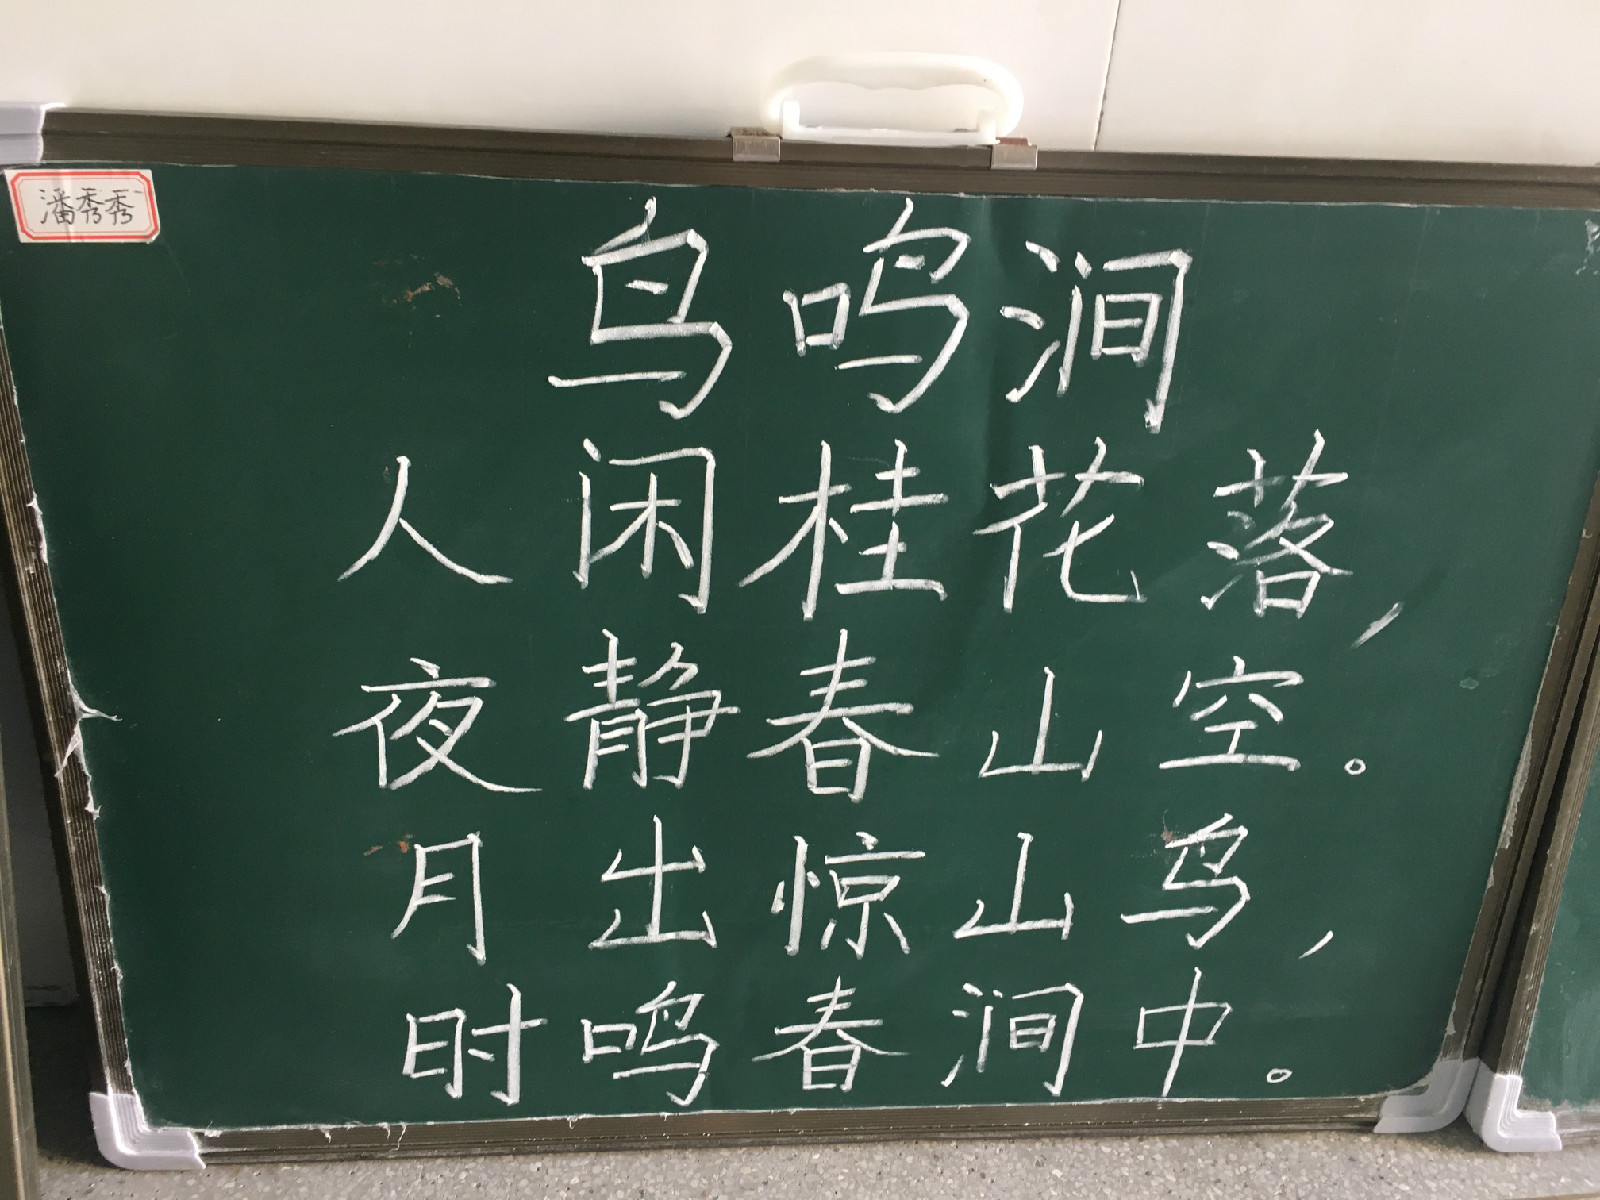 潘秀秀
鸟鸣涧
人闲桂花落,
夜静春山空。
月出惊山鸟,
时鸣春涧中。